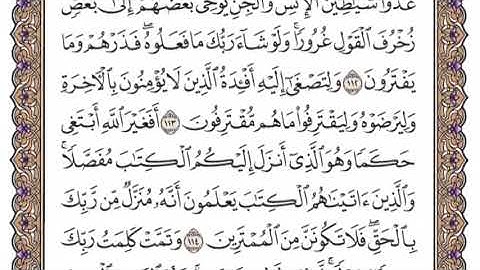 عَدُوًّا شَيَٰطِينَ ٱلْإِنسِ وَٱلْجِنِّ يُوحِى بَعْضُهُمْ إِلَىٰ بَعْضٍ
زُخْرُفَ ٱلْقَوْلِ غُرُورًا ۚ وَلَوْ شَآءَ رَبُّكَ مَا فَعَلُوهُ ۖ فَذَرْهُمْ وَمَا
يَفْتَرُونَ ١١٢ وَلِتَصْغَىٰٓ إِلَيْهِ أَفْـِٔدَةُ ٱلَّذِينَ لَا يُؤْمِنُونَ بِٱلْءَاخِرَةِ
وَلِيَرْضَوْهُ وَلِيَقْتَرِفُوا۟ مَا هُم مُّقْتَرِفُونَ ١١٣ أَفَغَيْرَ ٱللَّهِ أَبْتَغِى
حَكَمًا وَهُوَ ٱلَّذِىٓ أَنزَلَ إِلَيْكُمُ ٱلْكِتَٰبَ مُفَصَّلًا ۚ
وَٱلَّذِينَ ءَاتَيْنَٰهُمُ ٱلْكِتَٰبَ يَعْلَمُونَ أَنَّهُۥ مُنَزَّلٌ مِّن رَّبِّكَ
بِٱلْحَقِّ ۖ فَلَا تَكُونَنَّ مِنَ ٱلْمُمْتَرِينَ ١١٤ وَتَمَّتْ كَلِمَتُ رَبِّكَ